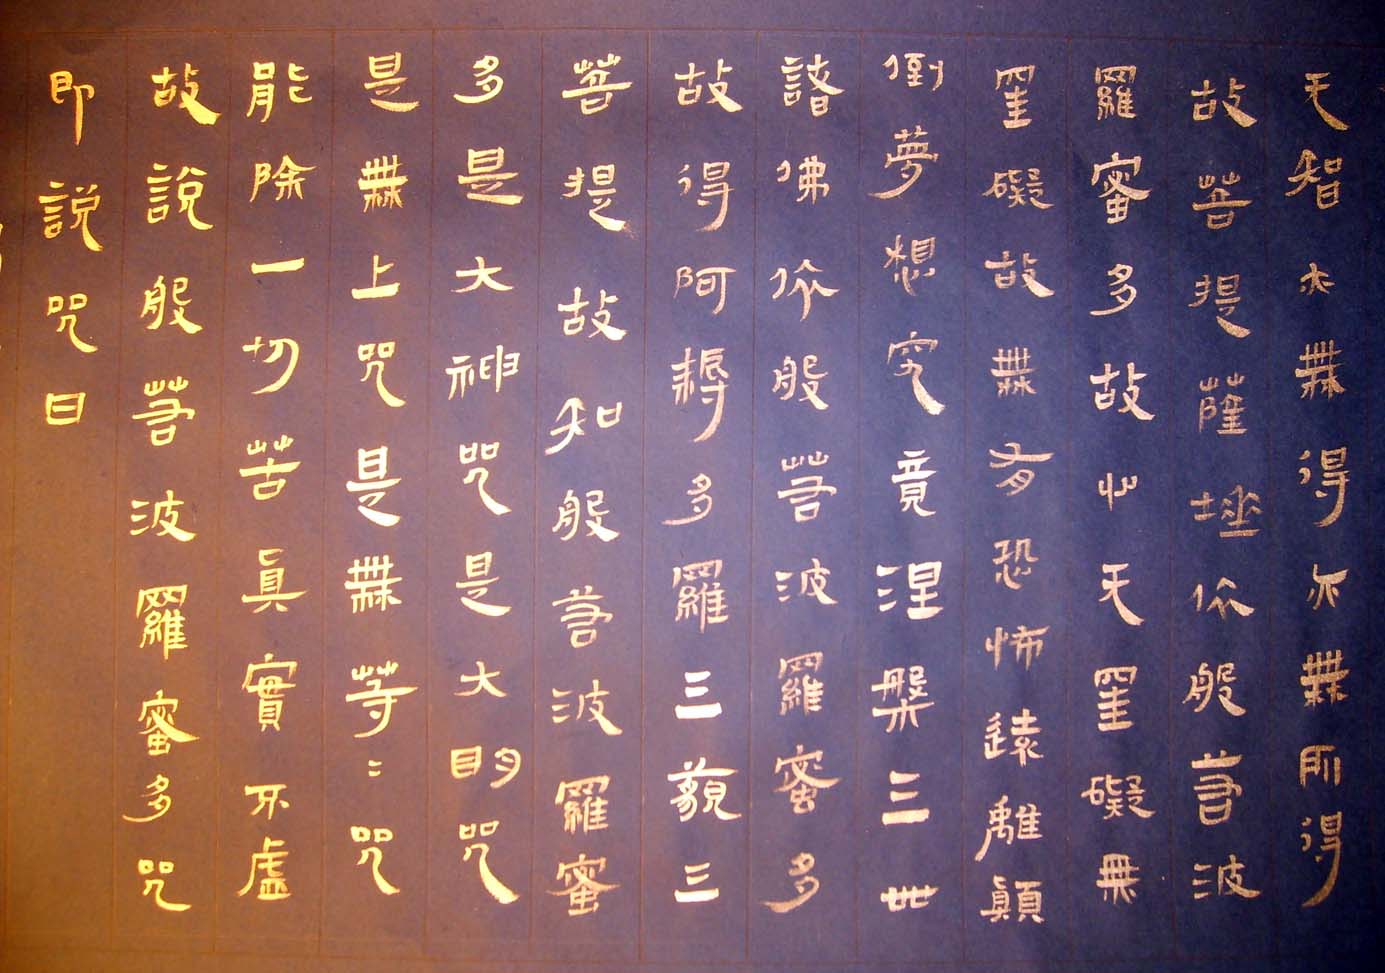 无智亦無得以無所得
故菩提薩埵依般若波
羅蜜多故心无罣礙無
罣礙故無有恐怖遠離顛
倒夢想究竟涅槃三世
諸佛依般若波羅蜜多
故得阿耨多羅三藐三
菩提故知般若波羅蜜
多是大神咒是大明咒
是無上咒是無等〻咒
能除一切苦眞實不虛
故說般若波羅蜜多咒
即說咒曰